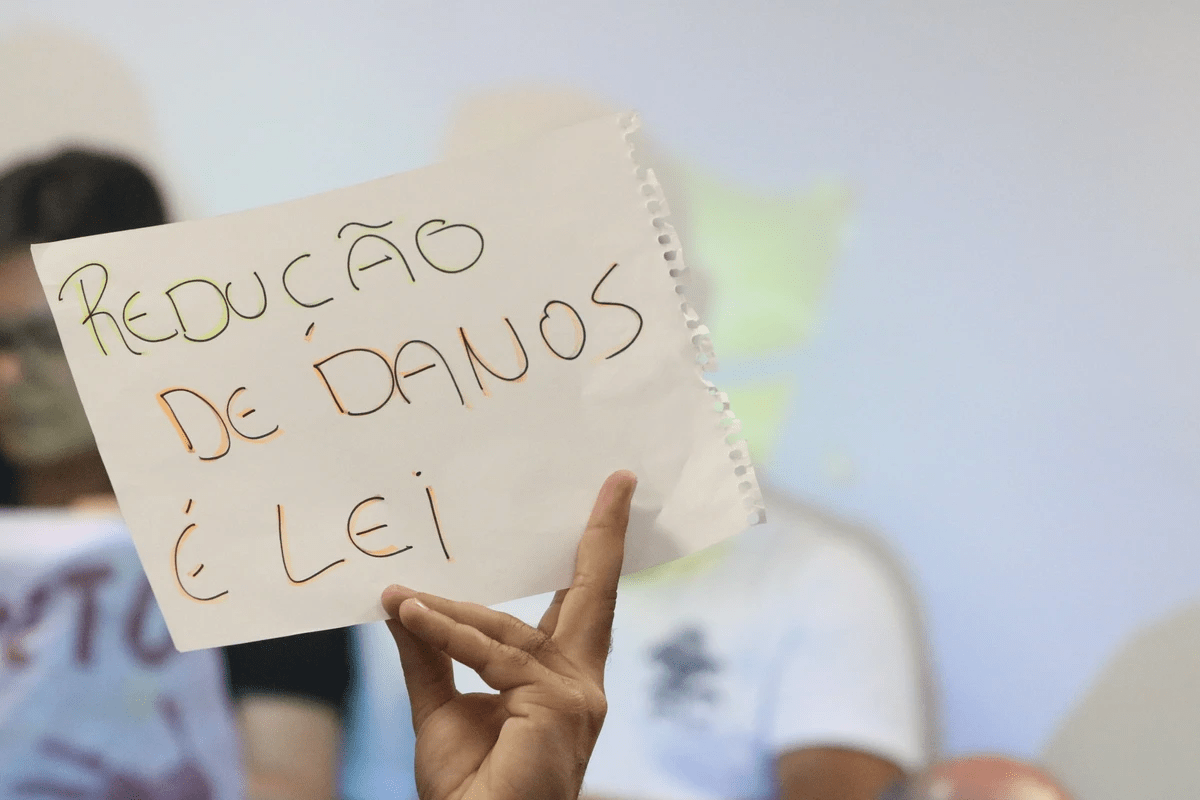 REDUÇÃO
DE DANOS
É LEI